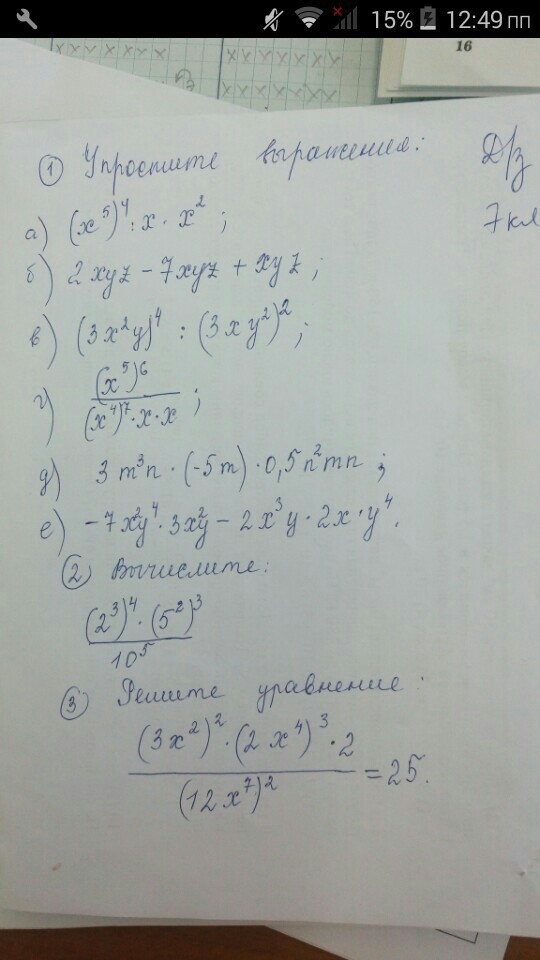 15% 12:49 пп
16
① Упростите выражения: Д/з
7 кл
а) (x⁵)⁴ : x · x² ;
б) 2xyz − 7xyz + xyz ;
в) (3x²y)⁴ : (3xy²)² ;
г) (x⁵)⁶ / (x⁴)⁷ · x · x ;
д) 3m³n · (-5m) · 0,5n²mn ;
е) −7x²y⁴ · 3xy² − 2x³y · 2x · y⁴.
② Вычислите:
(2³)⁴ · (5²)³ / 10⁵
③ Решите уравнение:
(3x²)² · (2x⁴)³ · 2 / (12x⁷)² = 25.